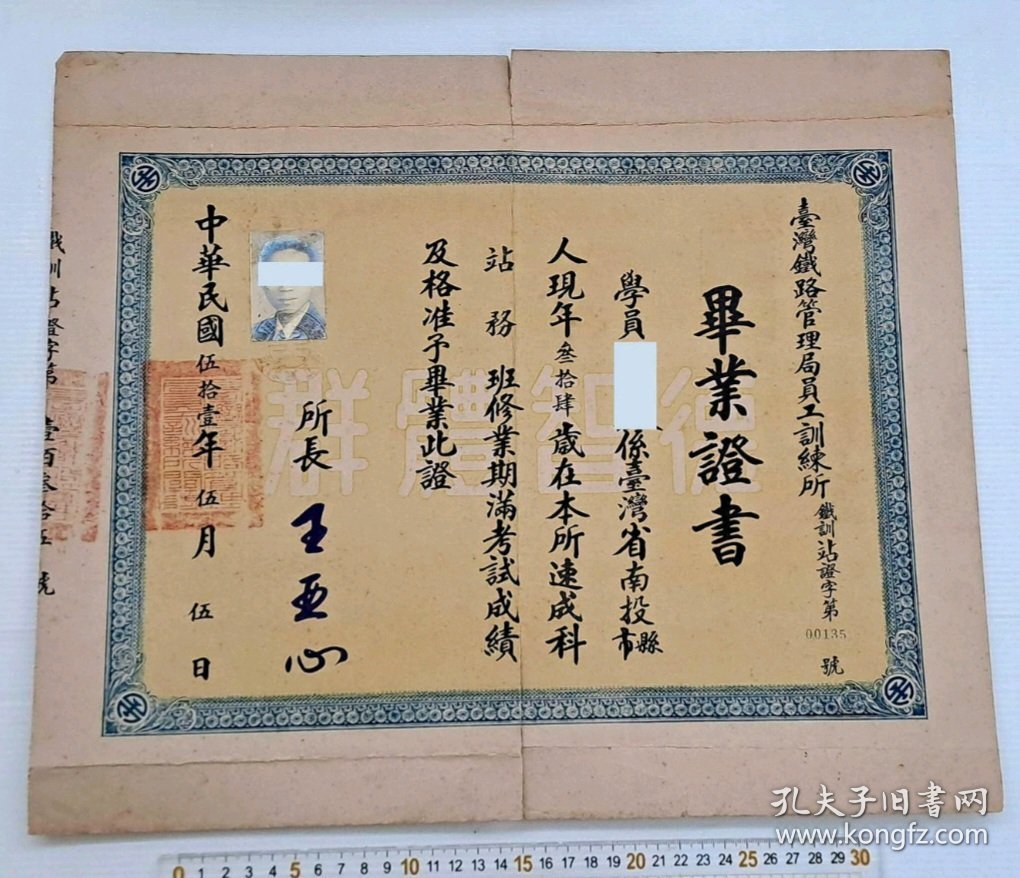 臺灣鐵路管理局員工訓練所
鐵訓站證字第00135號
畢業證書
學員 係臺灣省南投縣市
人現年叁拾肆歲在本所速成科
站務班修業期滿考試成績
及格准予畢業此證
所長 王亚心
中華民國伍拾壹年伍月伍日
群體智德
鐵訓站證字第壹百叁拾五號
孔夫子旧书网
www.kongfz.com
0 1 2 3 4 5 6 7 8 9 10 11 12 13 14 15 16 17 18 19 20 21 22 23 24 25 26 27 28 29 30